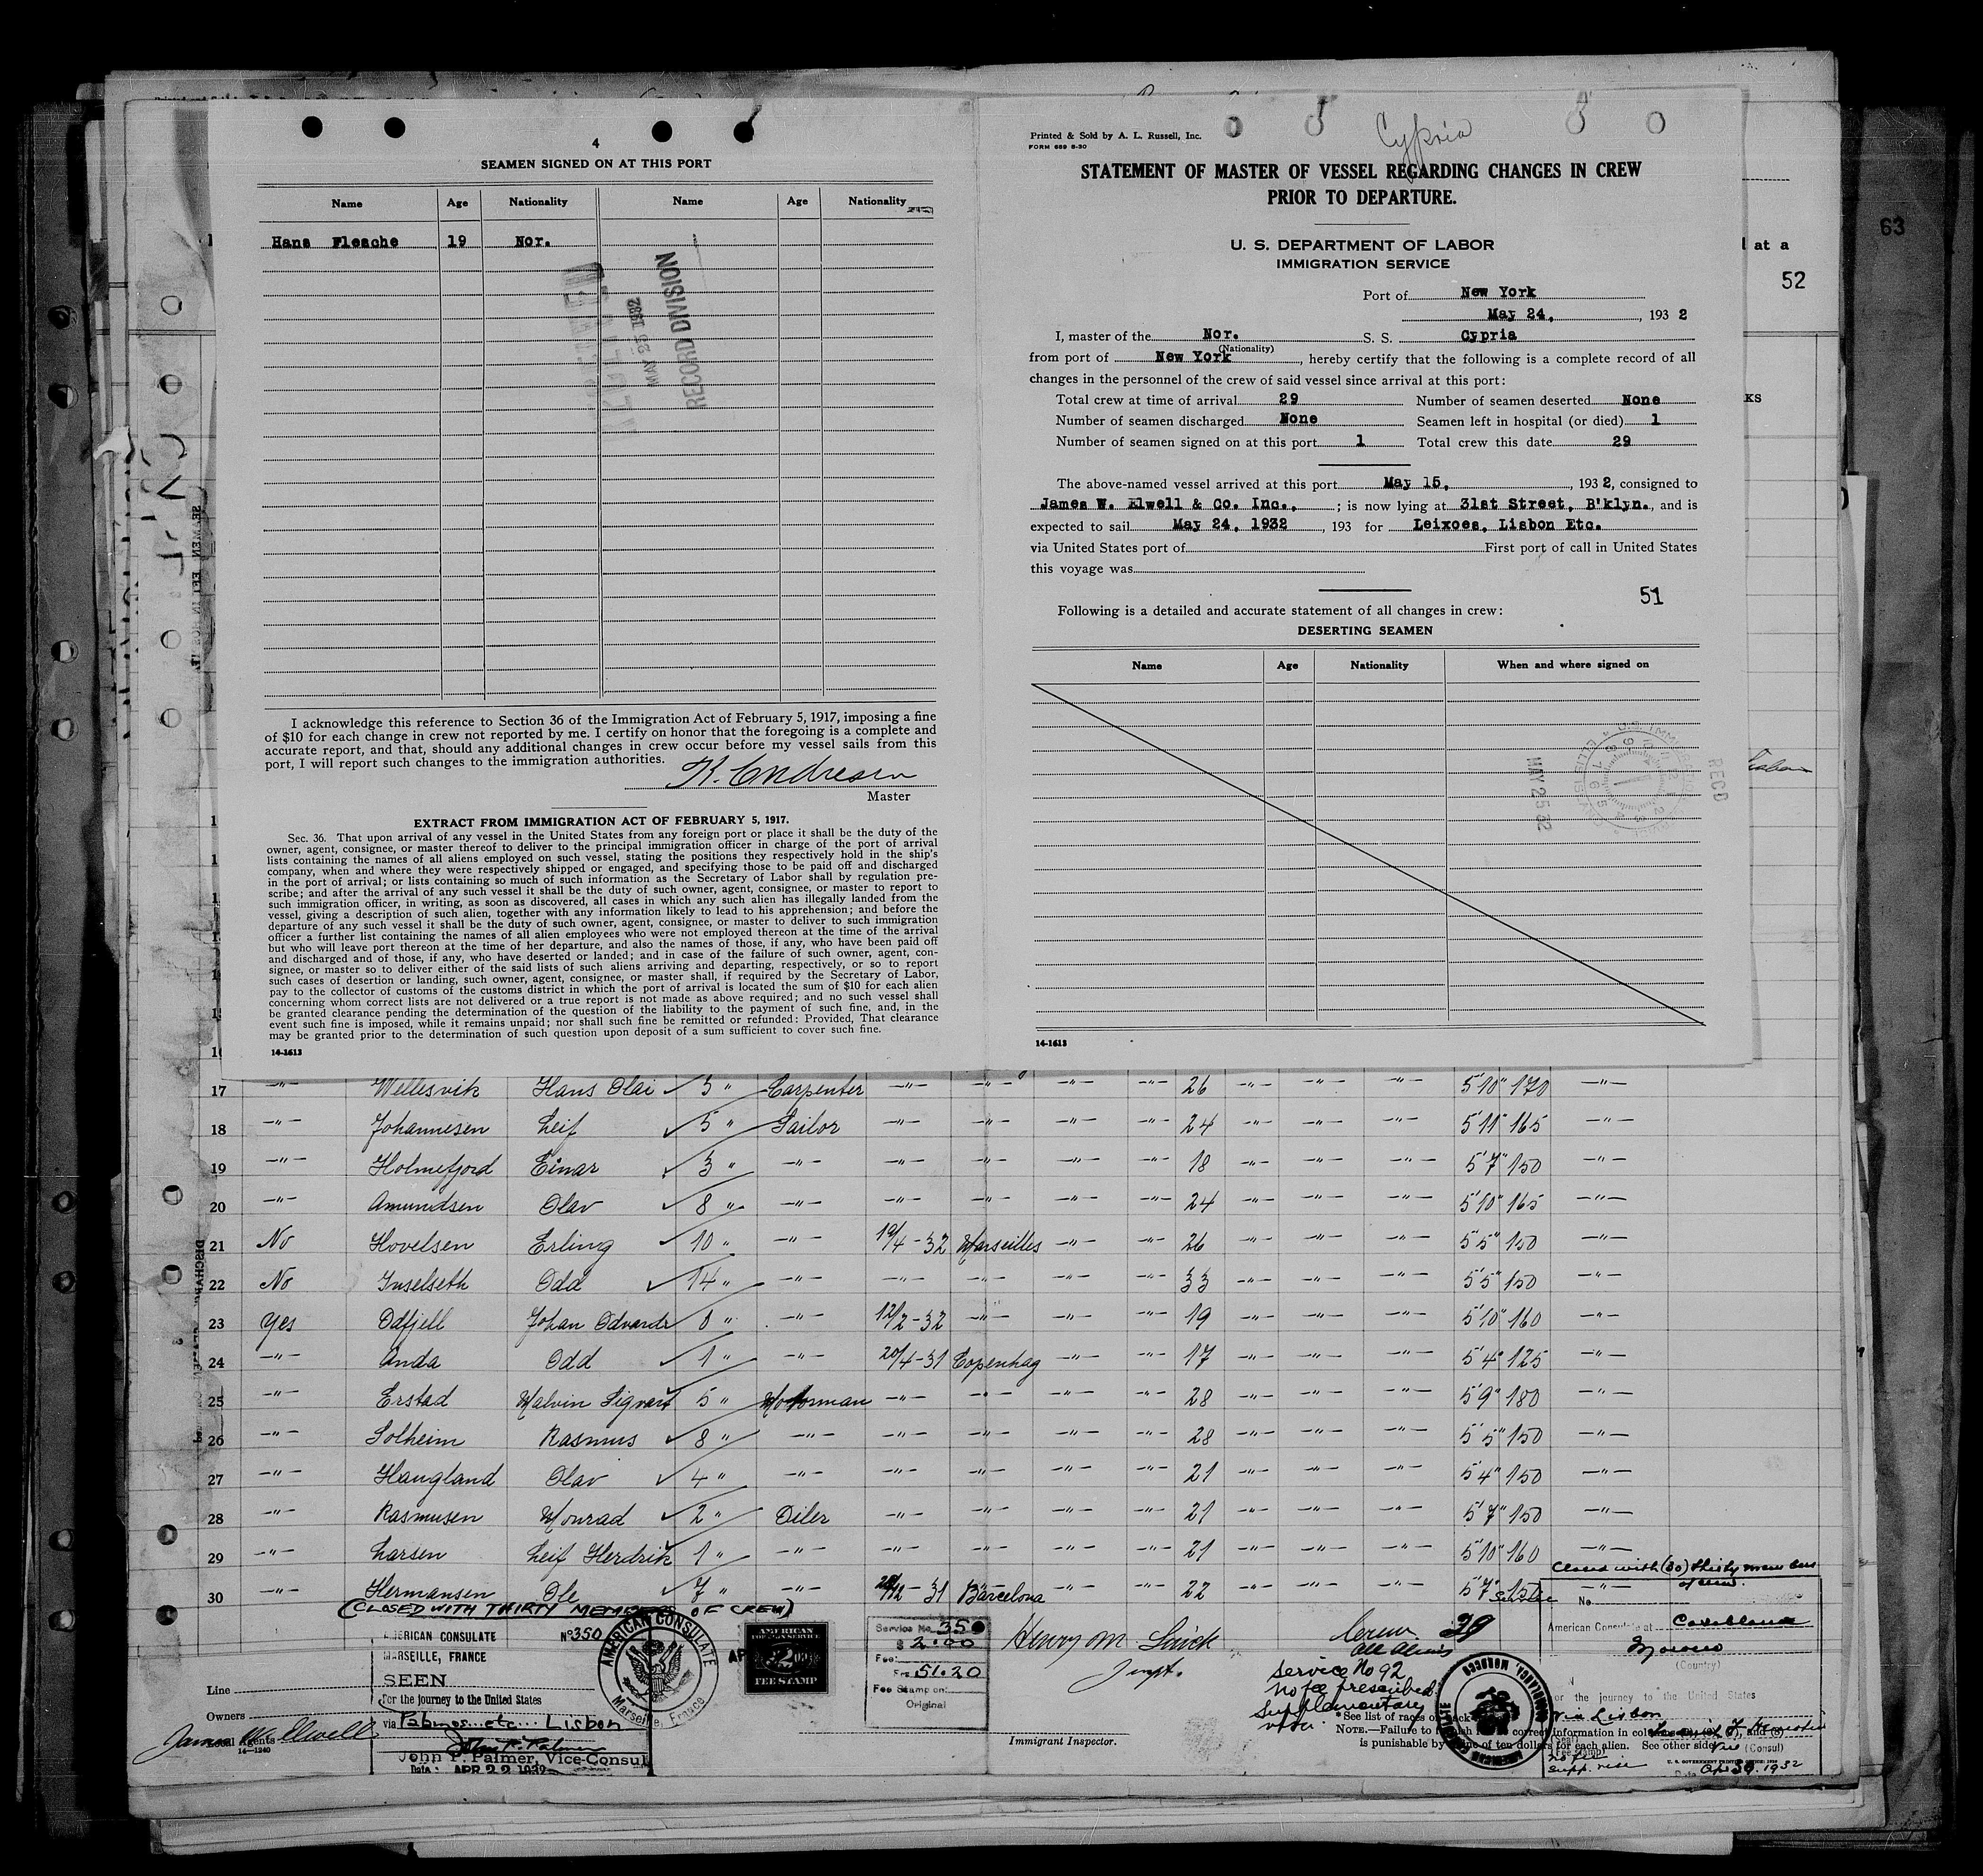 4
SEAMEN SIGNED ON AT THIS PORT
Name Age Nationality Name Age Nationality
Hans Flesche 19 Nor.
RECEIVED
MAY 25 1932
RECORD DIVISION
I acknowledge this reference to Section 36 of the Immigration Act of February 5, 1917, imposing a fine
of $10 for each change in crew not reported by me. I certify on honor that the foregoing is a complete and
accurate report, and that, should any additional changes in crew occur before my vessel sails from this
port, I will report such changes to the immigration authorities.
K. Endresen
Master
EXTRACT FROM IMMIGRATION ACT OF FEBRUARY 5, 1917.
Sec. 36. That upon arrival of any vessel in the United States from any foreign port or place it shall be the duty of the
owner, agent, consignee, or master thereof to deliver to the principal immigration officer in charge of the port of arrival
lists containing the names of all aliens employed on such vessel, stating the positions they respectively hold in the ship's
company, when and where they were respectively shipped or engaged, and specifying those to be paid off and discharged
in the port of arrival; or lists containing so much of such information as the Secretary of Labor shall by regulation pre-
scribe; and after the arrival of any such vessel it shall be the duty of such owner, agent, consignee, or master to report to
such immigration officer, in writing, as soon as discovered, all cases in which any such alien has illegally landed from the
vessel, giving a description of such alien, together with any information likely to lead to his apprehension; and before the
departure of any such vessel it shall be the duty of such owner, agent, consignee, or master to deliver to such immigration
officer a further list containing the names of all alien employees who were not employed thereon at the time of the arrival
but who will leave port thereon at the time of her departure, and also the names of those, if any, who have been paid off
and discharged and of those, if any, who have deserted or landed; and in case of the failure of such owner, agent, con-
signee, or master so to deliver either of the said lists of such aliens arriving and departing, respectively, or so to report
such cases of desertion or landing, such owner, agent, consignee, or master shall, if required by the Secretary of Labor,
pay to the collector of customs of the customs district in which the port of arrival is located the sum of $10 for each alien
concerning whom correct lists are not delivered or a true report is not made as above required; and no such vessel shall
be granted clearance pending the determination of the question of the liability to the payment of such fine, and, in the
event such fine is imposed, while it remains unpaid; nor shall such fine be remitted or refunded: Provided, That clearance
may be granted prior to the determination of such question upon deposit of a sum sufficient to cover such fine.
14-1613
Printed & Sold by A. L. Russell, Inc.
FORM 689 8-30
Cypria
STATEMENT OF MASTER OF VESSEL REGARDING CHANGES IN CREW
PRIOR TO DEPARTURE.
U. S. DEPARTMENT OF LABOR
IMMIGRATION SERVICE
Port of New York
May 24, , 193 2
I, master of the Nor. S. S. Cypria
(Nationality)
from port of New York , hereby certify that the following is a complete record of all
changes in the personnel of the crew of said vessel since arrival at this port:
Total crew at time of arrival 29 Number of seamen deserted None
Number of seamen discharged None Seamen left in hospital (or died) 1
Number of seamen signed on at this port 1 Total crew this date 29
The above-named vessel arrived at this port May 15, , 193 2, consigned to
James W. Elwell & Co. Inc., ; is now lying at 31st Street, B'klyn., and is
expected to sail May 24, 1932 , 193 for Leixoes, Lisbon Etc.
via United States port of First port of call in United States
this voyage was
51
Following is a detailed and accurate statement of all changes in crew:
DESERTING SEAMEN
Name Age Nationality When and where signed on
MAY 25 32
RECD
14-1613
63
at a
52
KS
17 —"— Wellesvik Hans Olai 5 " Carpenter —"— —"— —"— —"— 26 —"— —"— —"— 5'10" 170 —"—
18 —"— Johannesen Leif 5 " Sailor —"— —"— —"— —"— 24 —"— —"— —"— 5'11" 165 —"—
19 —"— Holmefjord Einar 3 " —"— —"— —"— —"— —"— 18 —"— —"— —"— 5'7" 150 —"—
20 —"— Amundsen Olav 8 " —"— —"— —"— —"— —"— 24 —"— —"— —"— 5'10" 165 —"—
21 No Hovelsen Erling 10 " —"— 19/4-32 Marseilles —"— —"— 26 —"— —"— —"— 5'5" 150 —"—
22 No Inselseth Odd 14 " —"— —"— —"— —"— —"— 33 —"— —"— —"— 5'5" 150 —"—
23 Yes Odfjell Johan Odvardt 0 " —"— 12/2-32 —"— —"— —"— 19 —"— —"— —"— 5'10" 160 —"—
24 —"— Anda Odd 1 " —"— 20/4-31 Copenhag —"— —"— 17 —"— —"— —"— 5'4" 125 —"—
25 —"— Erstad Malvin Sigvart 5 " Motorman —"— —"— —"— —"— 28 —"— —"— —"— 5'9" 180 —"—
26 —"— Solheim Rasmus 8 " —"— —"— —"— —"— —"— 28 —"— —"— —"— 5'5" 150 —"—
27 —"— Haugland Olav 4 " —"— —"— —"— —"— —"— 21 —"— —"— —"— 5'4" 150 —"—
28 —"— Rasmusen Monrad 2 " Oiler —"— —"— —"— —"— 21 —"— —"— —"— 5'7" 150 —"—
29 —"— Larsen Leif Herdrik 1 " —"— —"— —"— —"— —"— 21 —"— —"— —"— 5'10" 160 —"—
30 —"— Hermansen Ole 7 " —"— -31 Barcelona —"— —"— 22 —"— —"— —"— 5'7" —"—
(CLOSED WITH THIRTY MEMBERS OF CREW)
Closed with (30) thirty members
of crew.
AMERICAN CONSULATE No 350
MARSEILLE, FRANCE
SEEN
For the journey to the United States
via Palmos etc Lisbon
John P. Palmer
John P. Palmer, Vice-Consul
Date: APR 22 1932
AMERICAN CONSULATE
Marseille, France
AMERICAN
FOREIGN SERVICE
2
FEE STAMP
Service No. 350
$ 2.00
Fee:
Frs 51.20
Fee Stamp on
Original
Line
Owners
Local Agents
James W. Elwell
14-1240
Henry M
Inspt.
Immigrant Inspector.
29
all aliens
Service No 92
No fee prescribed
Supplementary
visa
*See list of races on back
NOTE.—Failure to furnish correct information in columns
is punishable by fine of ten dollars for each alien. See other side
AMERICAN CONSULATE
CASABLANCA, MOROCCO
Service
No.
American Consulate at Casablanca
Morocco
(Country)
For the journey to the United States
via Lisbon
(Consul)
(Seal)
(Fee Stamp)
No fee
supp. visa
U. S. GOVERNMENT PRINTING OFFICE
Date Apr 30, 1932